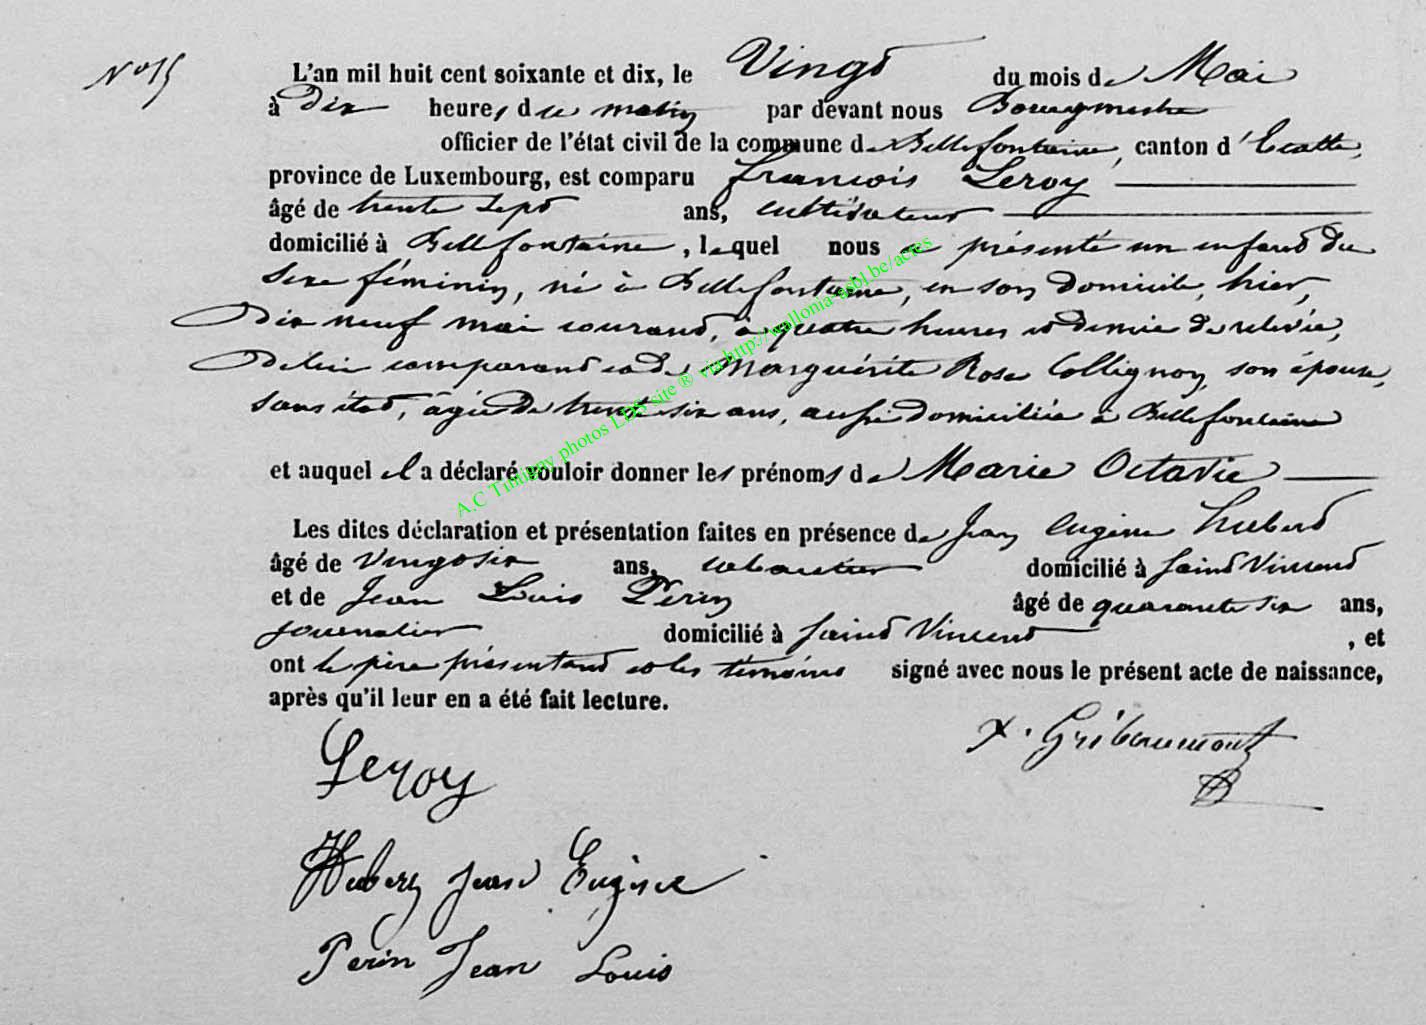 N° 15
L'an mil huit cent soixante et dix, le Vingt du mois de Mai
à Dix heures du matin par devant nous Bourgmestre
officier de l'état civil de la commune de Bellefontaine, canton d'Etalle,
province de Luxembourg, est comparu François Leroy
âgé de trente sept ans, cultivateur
domicilié à Bellefontaine, lequel nous a présenté un enfant du
sexe féminin, né à Bellefontaine, en son domicile, hier,
Dix neuf mai courant, à quatre heures et demie de relevée,
De lui comparant et de Marguérite Rose Collignon, son épouse,
sans état, âgée de trente six ans, aussi domiciliée à Bellefontaine
et auquel il a déclaré vouloir donner les prénoms de Marie Octavie
Les dites déclaration et présentation faites en présence de Jean Eugène Hubert
âgé de Vingt six ans, cabaretier domicilié à Saint Vincent
et de Jean Louis Perin âgé de quarante six ans,
journalier domicilié à Saint Vincent, et
ont le père présentant et les témoins signé avec nous le présent acte de naissance,
après qu'il leur en a été fait lecture.
X. Gribaumont
Leroy
Hubert Jean Eugène
Perin Jean Louis
A.C Tintigny photos LDS site ® via http://wallonia-asbl.be/actes